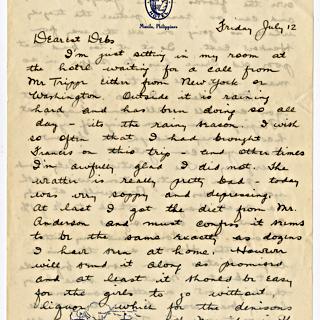 Manila, Philippines
Friday July 12
Dearest Debs
I'm just sitting in my room at
the hotel waiting for a call from
Mr Trippe either from New York or
Washington Outside it is raining
hard and has been doing so all
day - its the rainy season. I wish
so often that I had brought
Francis on this trip - and other times
I'm awfully glad I did not. The
weather is really pretty bad - today
was very soppy and depressing.
At last I got the diet from Mr.
Anderson and must confess it seems
to be the same exactly as dozens
I have seen at home. However
will send it along as promised
and at least it should be easy
for the girls to go without
liquor while for the denisons